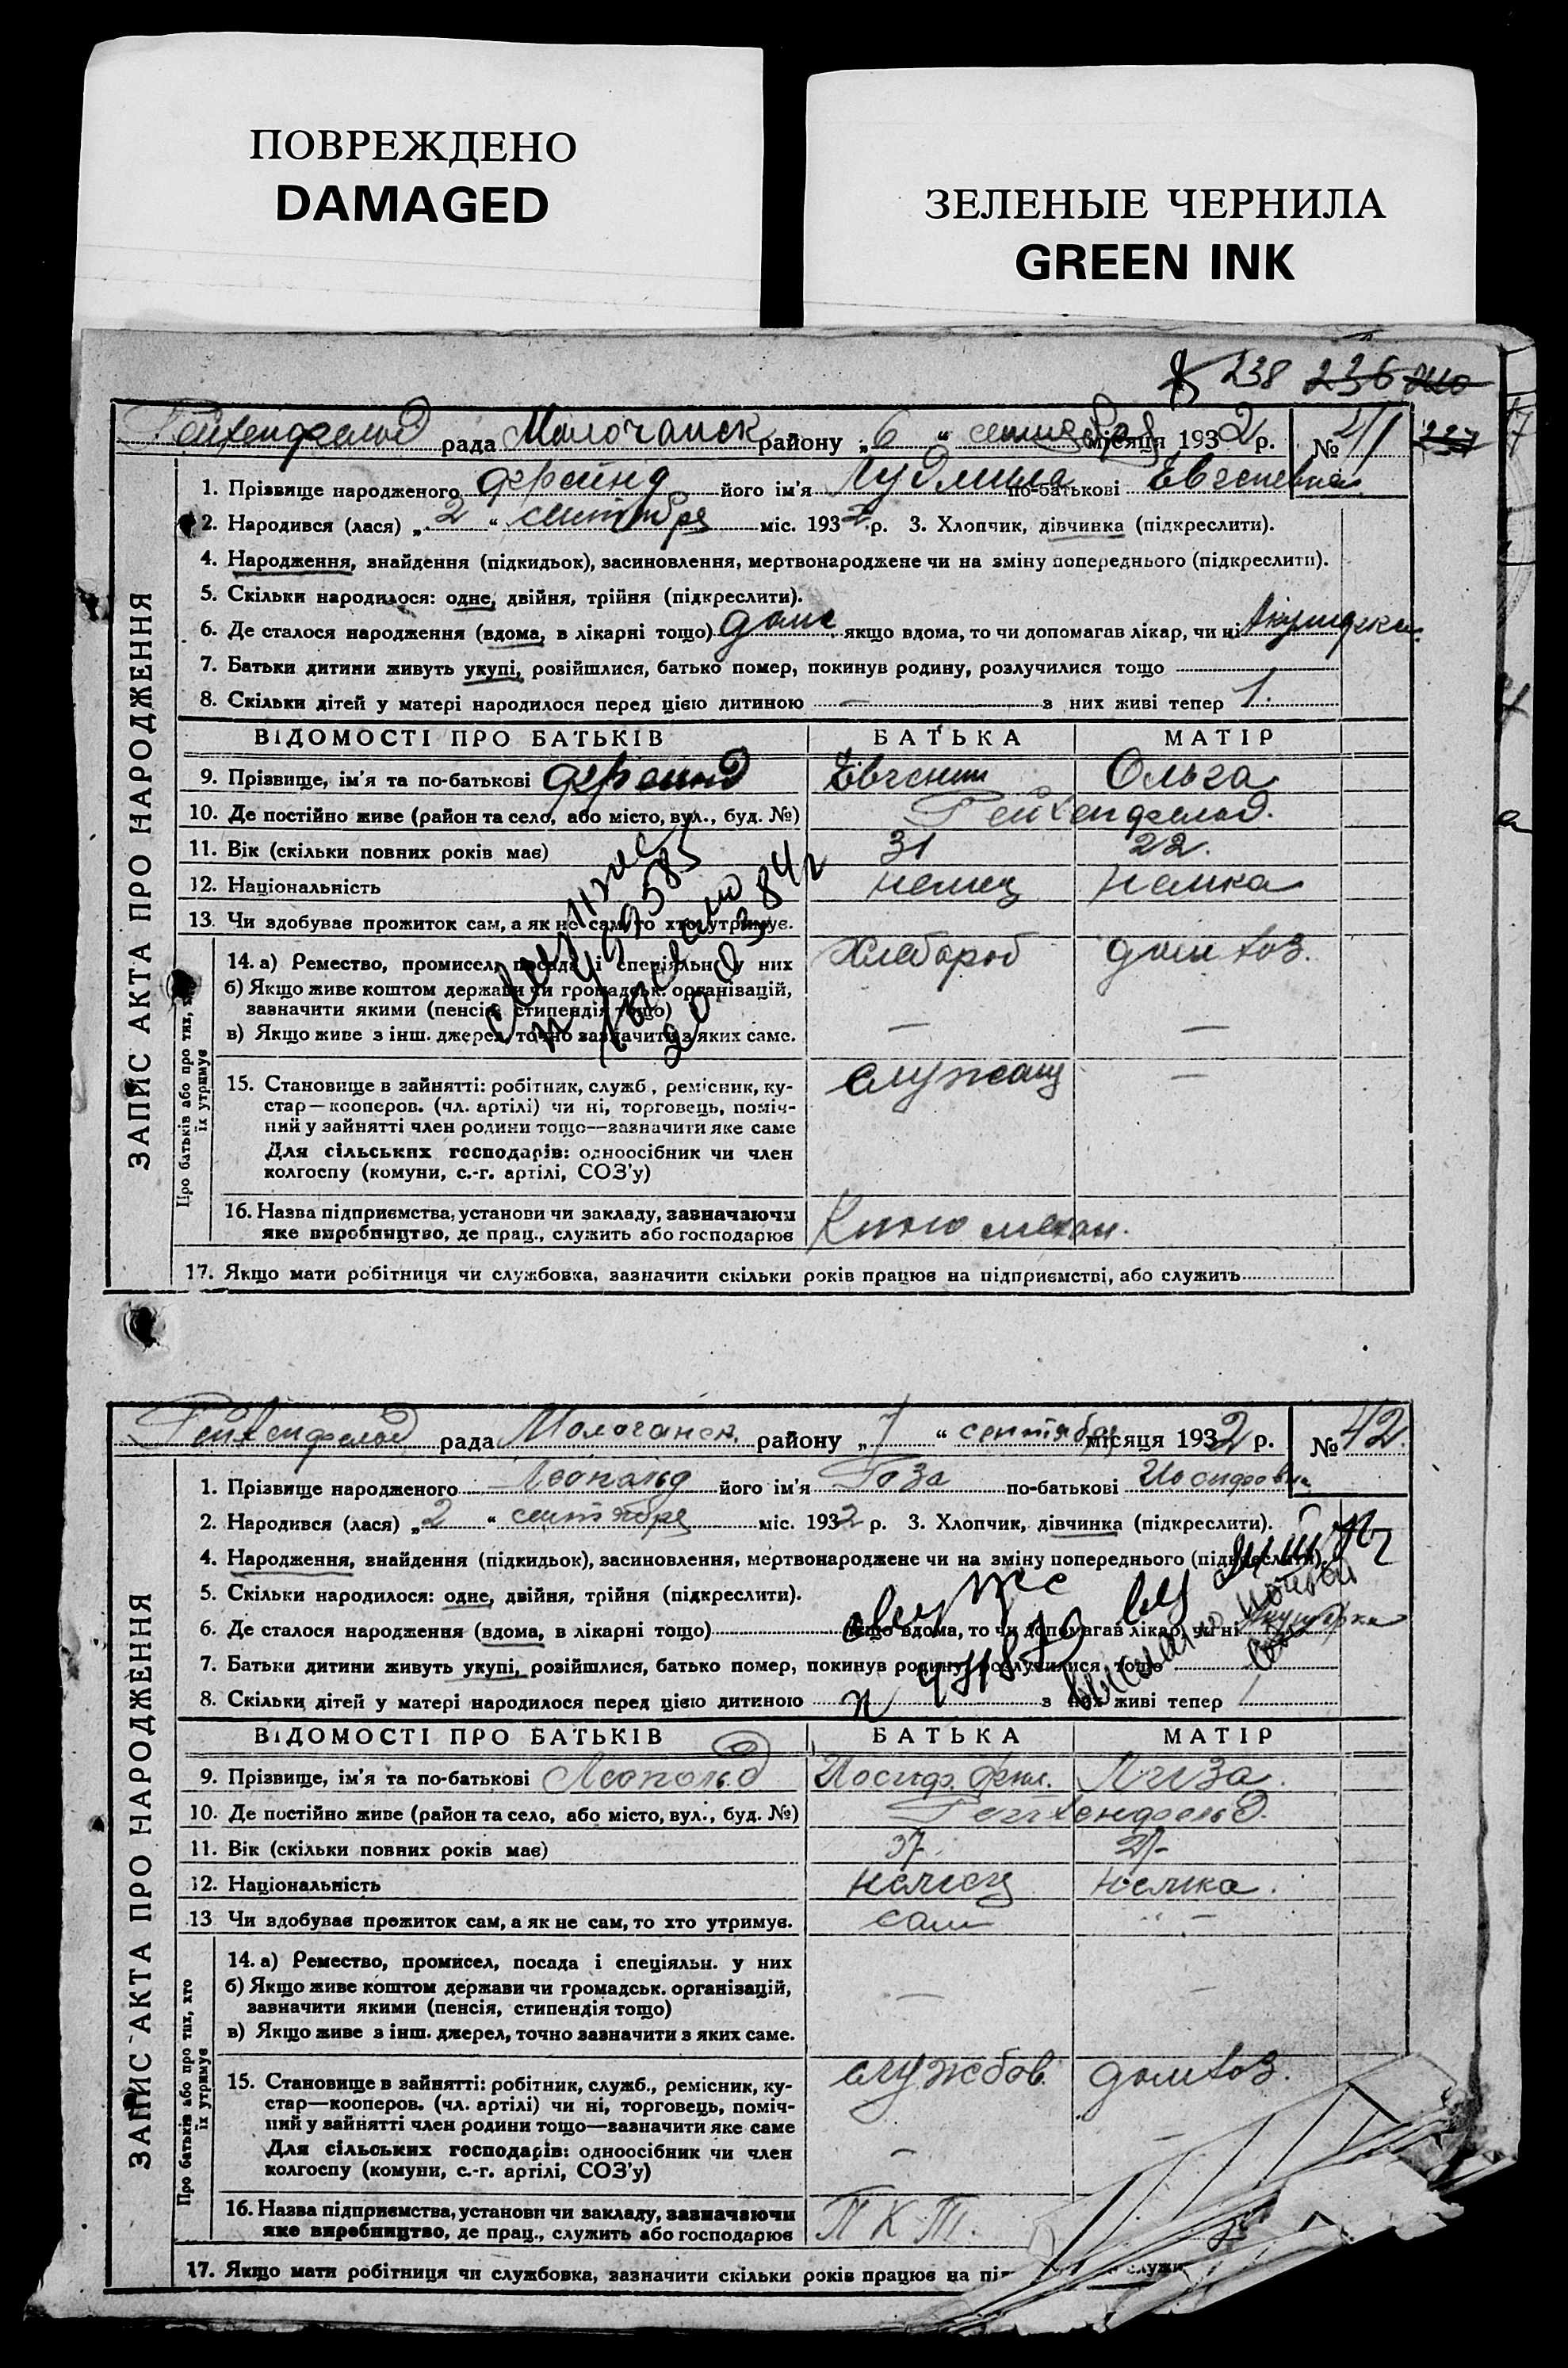 ПОВРЕЖДЕНО
DAMAGED
ЗЕЛЕНЫЕ ЧЕРНИЛА
GREEN INK
238 236 240
237
Рейхенфельд рада Молочанск району „6“ сентября місяця 1932 р. № 41
1. Прізвище народженого Фрейнд його ім'я Лудмила по-батькові Евгеневна
2. Народився (лася) „2“ сентября міс. 1932 р. 3. Хлопчик, дівчинка (підкреслити).
4. Народження, знайдення (підкидьок), засиновлення, мертвонароджене чи на зміну попереднього (підкреслити).
5. Скільки народилося: одне, двійня, трійня (підкреслити).
6. Де сталося народження (вдома, в лікарні тощо) дома якщо вдома, то чи допомагав лікар, чи ні Акушерка
7. Батьки дитини живуть укупі, розійшлися, батько помер, покинув родину, розлучилися тощо
8. Скільки дітей у матері народилося перед цією дитиною — з них живі тепер 1.
ВІДОМОСТІ ПРО БАТЬКІВ БАТЬКА МАТІР
9. Прізвище, ім'я та по-батькові Фрейнд Евгений Ольга
10. Де постійно живе (район та село, або місто, вул., буд. №) Рейхенфельд.
11. Вік (скільки повних років має) 31 22.
12. Національність немец немка
13. Чи здобував прожиток сам, а як не сам, то хто утримує.
14. а) Ремество, промисел, посада і спеціяльн. у них Хлебороб дом хоз.
б) Якщо живе коштом держави чи громадськ. організацій,
зазначити якими (пенсія, стипендія тощо)
в) Якщо живе з інш. джерел, точно зазначити з яких саме. — —
15. Становище в зайнятті: робітник, служб., ремісник, ку- служащ —
стар—кооперов. (чл. артілі) чи ні, торговець, поміч-
ний у зайнятті член родини тощо—зазначити яке саме
Для сільських господарів: одноосібник чи член
колгоспу (комуни, с.-г. артілі, СОЗ'у)
16. Назва підприємства, установи чи закладу, зазначаючи Кино механ.
яке виробництво, де прац., служить або господарює
17. Якщо мати робітниця чи службовка, зазначити скільки років працює на підприємстві, або служить
ЗАПИС АКТА ПРО НАРОДЖЕННЯ
Про батьків або про тих, хто
їх утримує
Рейхенфельд рада Молочанск. району „7“ сентября місяця 1932 р. № 42.
1. Прізвище народженого Леопольд його ім'я Роза по-батькові Иосифовна
2. Народився (лася) „2“ сентября міс. 1932 р. 3. Хлопчик, дівчинка (підкреслити).
4. Народження, знайдення (підкидьок), засиновлення, мертвонароджене чи на зміну попереднього (підкреслити).
5. Скільки народилося: одне, двійня, трійня (підкреслити).
6. Де сталося народження (вдома, в лікарні тощо) якщо вдома, то чи допомагав лікар, чи ні Акушерка
7. Батьки дитини живуть укупі, розійшлися, батько помер, покинув родину, розлучилися тощо
8. Скільки дітей у матері народилося перед цією дитиною з них живі тепер
ВІДОМОСТІ ПРО БАТЬКІВ БАТЬКА МАТІР
9. Прізвище, ім'я та по-батькові Леопольд Иосиф Лиза.
10. Де постійно живе (район та село, або місто, вул., буд. №) Рейхенфельд.
11. Вік (скільки повних років має) 37.
12. Національність немец немка.
13 Чи здобував прожиток сам, а як не сам, то хто утримує. сам
14. а) Ремество, промисел, посада і спеціяльн. у них
б) Якщо живе коштом держави чи громадськ. організацій, — —
зазначити якими (пенсія, стипендія тощо)
в) Якщо живе з інш. джерел, точно зазначити з яких саме.
15. Становище в зайнятті: робітник, служб., ремісник, ку- службов. дом хоз.
стар—кооперов. (чл. артілі) чи ні, торговець, поміч-
ний у зайнятті член родини тощо—зазначити яке саме
Для сільських господарів: одноосібник чи член — —
колгоспу (комуни, с.-г. артілі, СОЗ'у)
16. Назва підприємства, установи чи закладу, зазначаючи П К Т.
яке виробництво, де прац., служить або господарює
17. Якщо мати робітниця чи службовка, зазначити скільки років працює на під служи
ЗАПИС АКТА ПРО НАРОДЖЕННЯ
Про батьків або про тих, хто
їх утримує